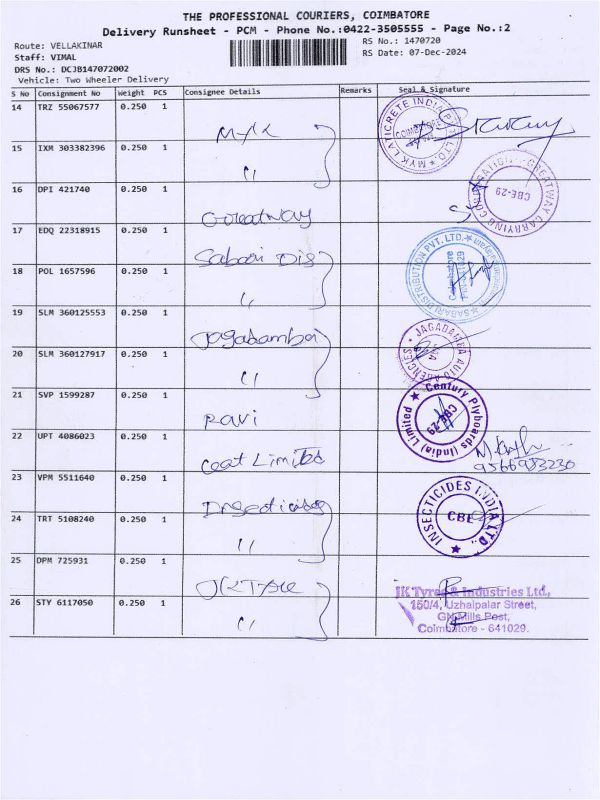 THE PROFESSIONAL COURIERS, COIMBATORE
Delivery Runsheet - PCM - Phone No.:0422-3505555 - Page No.:2
Route: VELLAKINAR
RS No.: 1470720
Staff: VIMAL
RS Date: 07-Dec-2024
DRS No.: DCJB147072002
Vehicle: Two Wheeler Delivery
S No Consignment No Weight PCS Consignee Details Remarks Seal & Signature
14 TRZ 55067577 0.250 1
MYK
MYK LATICRETE INDIA PVT. LTD.
15 IXM 303382396 0.250 1
"
16 DPI 421740 0.250 1
Greatway
GREATWAY CARRYING CORPORATION
CBE-29
17 EDQ 22318915 0.250 1
Sabari Dis
SABARI DISTRIBUTION PVT. LTD.
Coimbatore
18 POL 1657596 0.250 1
"
19 SLM 360125553 0.250 1
Jagadamba
JAGADAMBA AUTO AGENCIES
20 SLM 360127917 0.250 1
"
21 SVP 1599287 0.250 1
Ravi
Century Plyboards (India) Limited
CBE-29
22 UPT 4086023 0.250 1
Coat Limited
9566983230
23 VPM 5511640 0.250 1
Insecticides
INSECTICIDES INDIA LTD.,
CBE
24 TRT 5108240 0.250 1
"
25 DPM 725931 0.250 1
JK Tyre
JK Tyres & Industries Ltd,
150/4, Uzhaipalar Street,
GN Mills Post,
Coimbatore - 641029.
26 STY 6117050 0.250 1
"